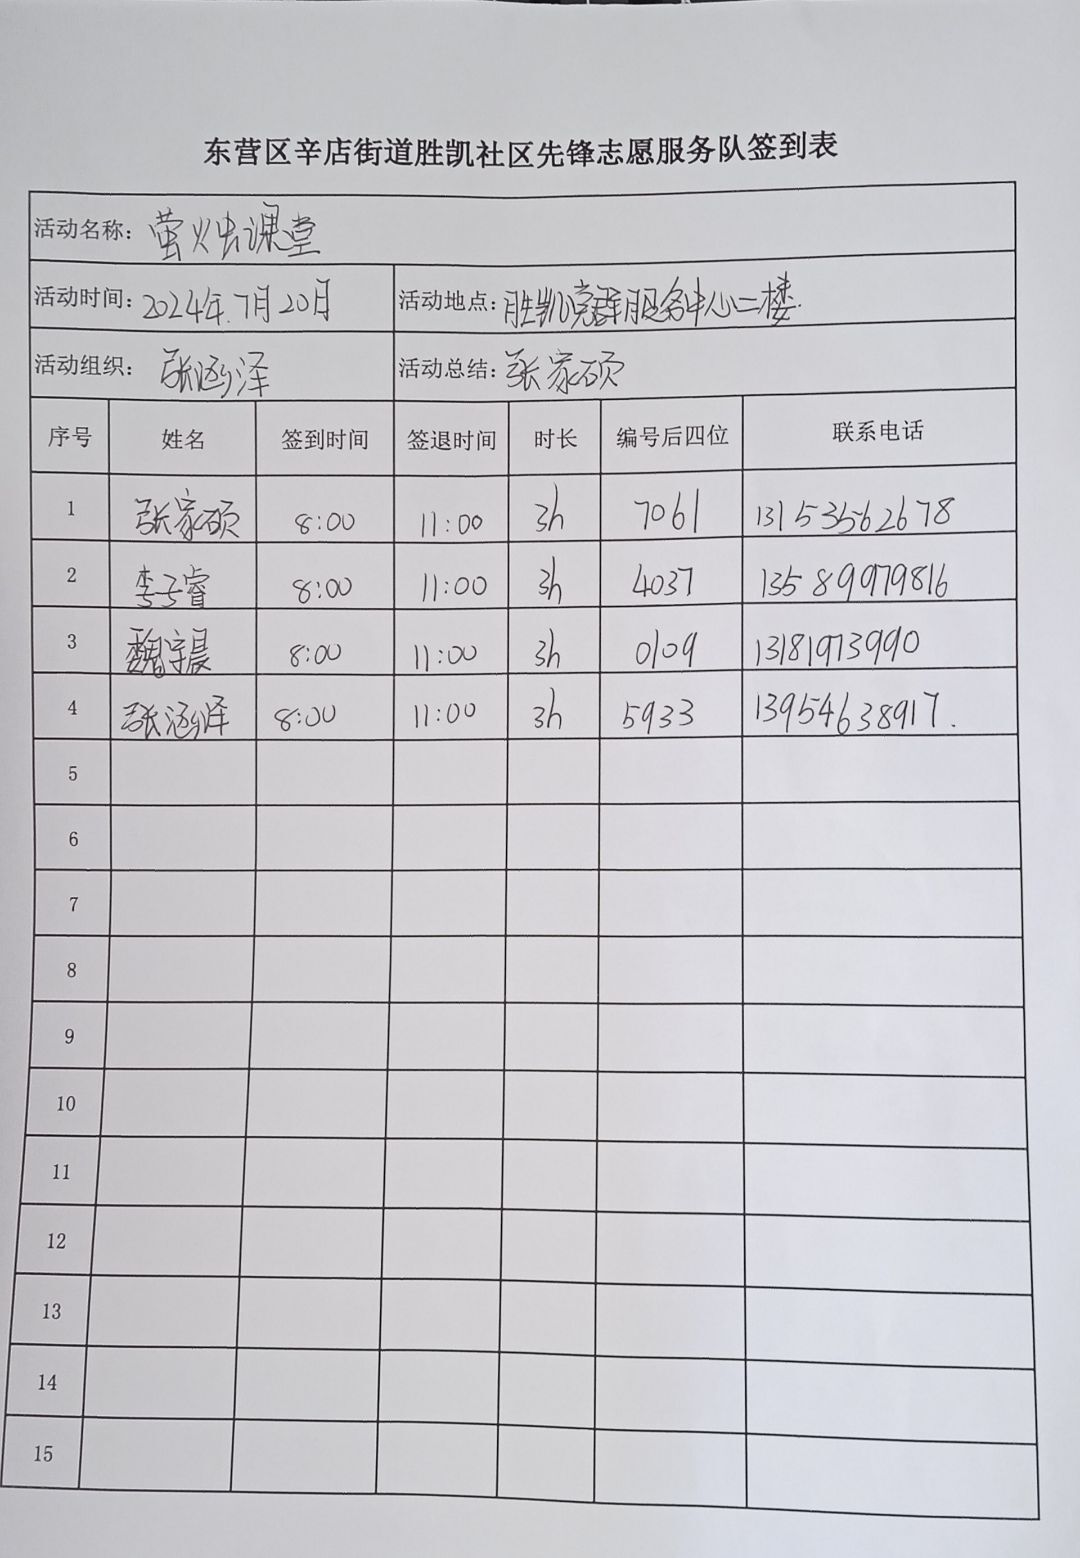 东营区辛店街道胜凯社区先锋志愿服务队签到表
活动名称：萤烛课堂
活动时间：2024年.7月20日 活动地点：胜凯党群服务中心二楼.
活动组织：张涵泽 活动总结：张家硕
序号 姓名 签到时间 签退时间 时长 编号后四位 联系电话
1 张家硕 8:00 11:00 3h 7061 13153562678
2 李子睿 8:00 11:00 3h 4037 13589979816
3 魏宇晨 8:00 11:00 3h 0109 13181973990
4 张涵泽 8:00 11:00 3h 5933 13954638917.
5
6
7
8
9
10
11
12
13
14
15